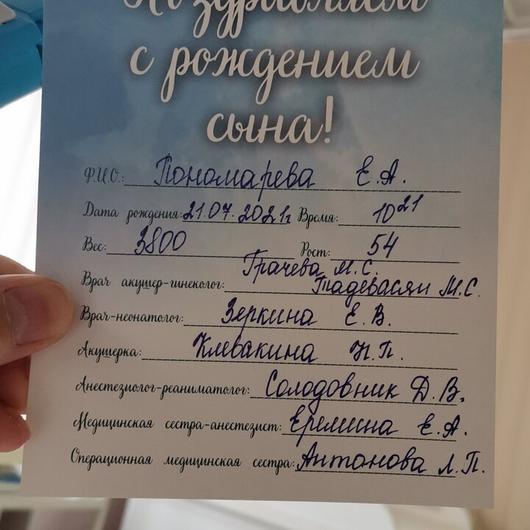 Поздравляем
с рождением
сына!
Ф.И.О.: Пономарева Е.А.
Дата рождения: 21.07.2021г Время: 10 21
Вес: 3800 Рост: 54
Грачева М.С.
Врач акушер-гинеколог: Тадевасян М.С.
Врач-неонатолог: Зеркина Е.В.
Акушерка: Клевакина Н.П.
Анестезиолог-реаниматолог: Солодовник Д.В.
Медицинская сестра-анестезист: Еремина Е.А.
Операционная медицинская сестра: Антонова Л.П.